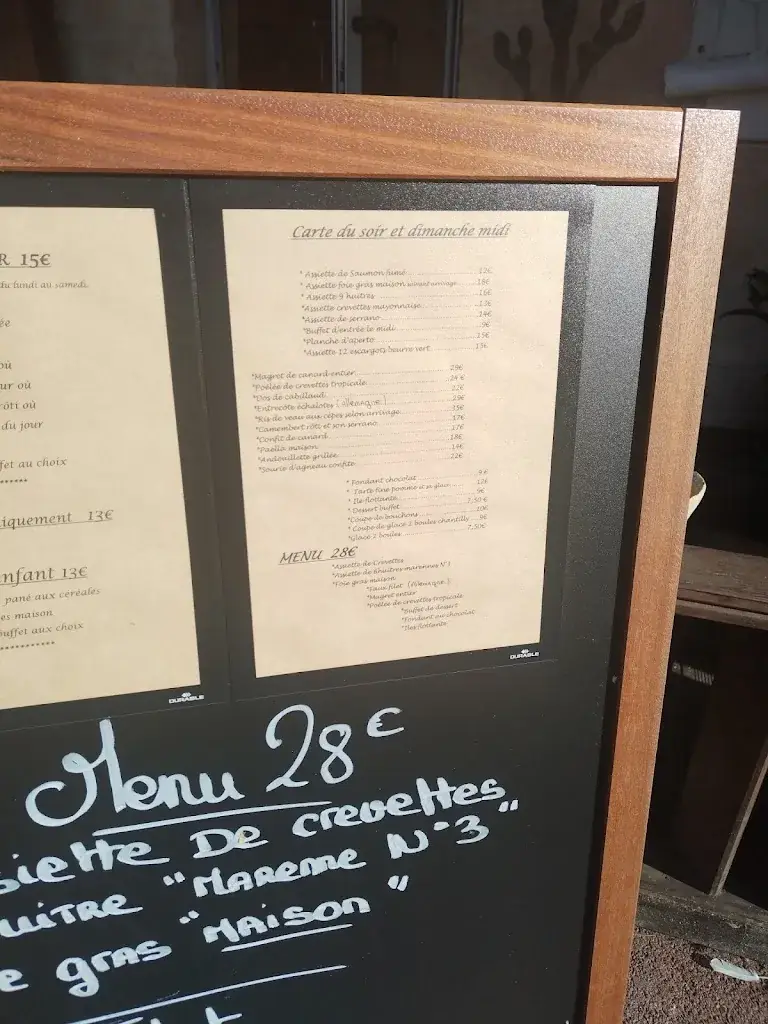 R 15€
du lundi au samedi.
ée
où
ur où
rôti où
du jour
fet au choix
*******
iquement 13€
nfant 13€
pané aux céréales
es maison
buffet aux choix
***********
DURABLE
Carte du soir et dimanche midi
*Assiette de Saumon fumé 12€
*Assiette foie gras maison 18€
*Assiette 9 huitres 16€
*Assiette crevettes mayonnaise 13€
*Assiette de serrano 14€
*Buffet d'entrée le midi 9€
*Planche d'apero 15€
*Assiette 12 escargots beurre vert 13€
*Magret de canard entier 29€
*Poêlée de crevettes tropicale 24€
*Dos de cabillaud 22€
*Entrecote échalotes 29€
*Ris de veau aux cèpes selon arrivage 35€
*Camembert rôti et son serrano 17€
*Confit de canard 17€
*Paella maison 18€
*Andouillette grillée 14€
*Souris d'agneau confite 22€
* Fondant chocolat 9€
* Tarte fine pomme et sa glace 12€
* Ile flottante 9€
* Dessert buffet 7,50€
*Coupe de bouchons 10€
* Coupe de glace 2 boules chantilly 9€
*Glace 2 boules 7,50€
MENU 28€
*Assiette de Crevettes
*Assiette de 6huitres marennes N°3
*Foie gras maison
*Faux filet
*Magret entier
*Poêlée de crevettes tropicale
*Buffet de dessert
*Fondant au chocolat
*Iles flottante
DURABLE
Menu 28€
siette De crevettes
uitre "Marenne N°3"
e gras "Maison"